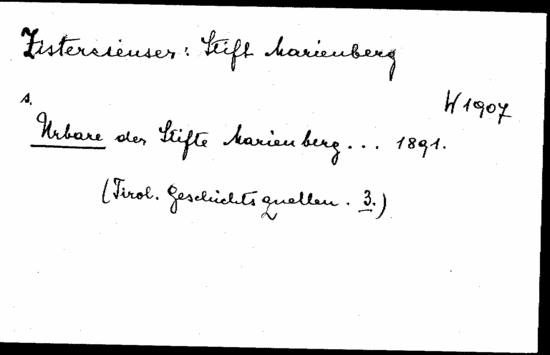 Zisterzienser: Stift Marienberg
W 1907
s.
Urbare der Stifte Marienberg... 1891.
(Tirol. Geschichtsquellen. 3.)